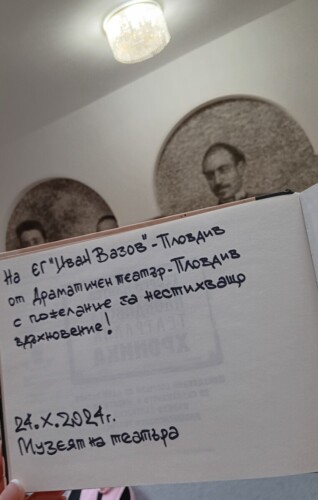 На ЕГ "Иван Вазов"-Пловдив
от Драматичен театър-Пловдив
с пожелание за нестихващо
вдъхновение!
24.X.2024г.
Музеят на театъра
ХРОНИКА